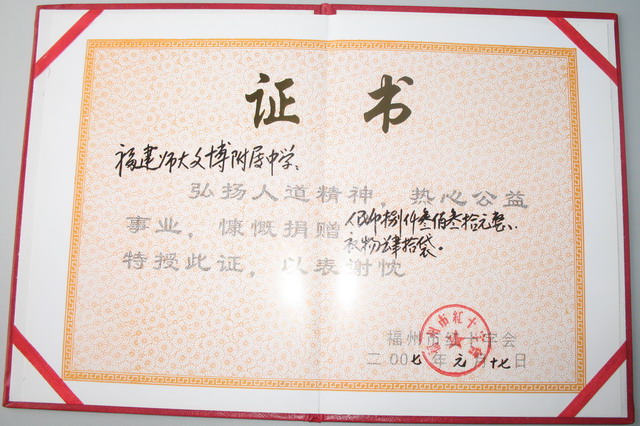 证书
福建师大文博附属中学:
弘扬人道精神，热心公益
事业，慷慨捐赠人民币捌仟叁佰叁拾元整、
衣物肆拾袋。
特授此证，以表谢忱
福州市红十字会
二00七年元月十七日
福州市红十字会